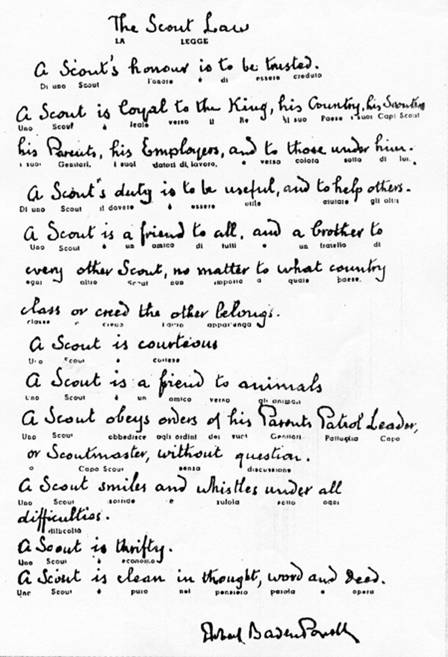 The Scout Law
LA LEGGE
A Scout's honour is to be trusted.
Di uno Scout l'onore è di essere creduto
A Scout is loyal to the King, his Country, his Scouters
Uno Scout è leale verso il Re il suo Paese i suoi Capi Scout
his Parents, his Employers, and to those under him.
i suoi Genitori, i suoi datori di lavoro, e verso coloro sotto di lui.
A Scout's duty is to be useful, and to help others.
Di uno Scout il dovere è essere utile aiutare gli altri
A Scout is a friend to all, and a brother to
Uno Scout è un amico di tutti e un fratello di
every other Scout, no matter to what country
ogni altro Scout non importa a quale paese,
class or creed the other belongs.
classe o l'altro appartenga
A Scout is courteous
Uno Scout è cortese
A Scout is a friend to animals
Uno Scout è un amico verso gli animali
A Scout obeys orders of his Parents Patrol Leader,
Uno Scout obbedisce agli ordini dei suoi Genitori Pattuglia Capo
or Scoutmaster, without question.
o Capo Scout senza discussione
A Scout smiles and whistles under all
Uno Scout sorride e sotto ogni
difficulties.
difficoltà
A Scout is thrifty.
Uno Scout è economo
A Scout is clean in thought, word and deed.
Uno Scout è puro nel pensiero parola e opera
Robert Baden Powell